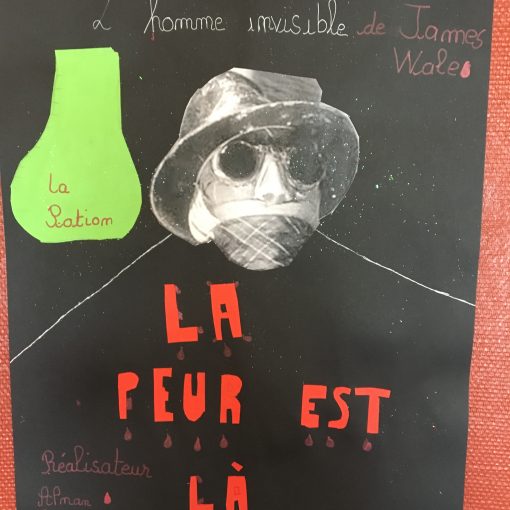 L homme invisible de James
Wale
la
Potion
LA
PEUR EST
LÀ
Réalisateur